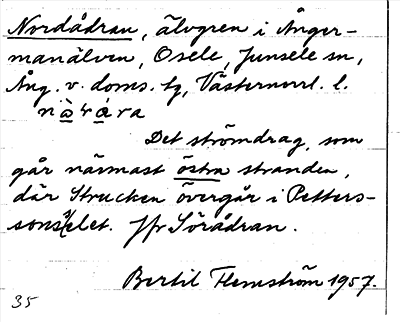 Nordådran, älvgren i Ånger-
manälven, Osele, Junsele sn,
Ång. v. doms. tg, Västernorrl. l.
Det strömdrag, som
går närmast östra stranden,
där Strucken övergår i Petters-
sonselet. Jfr Sörådran.
Bertil Flemström 1957.
35